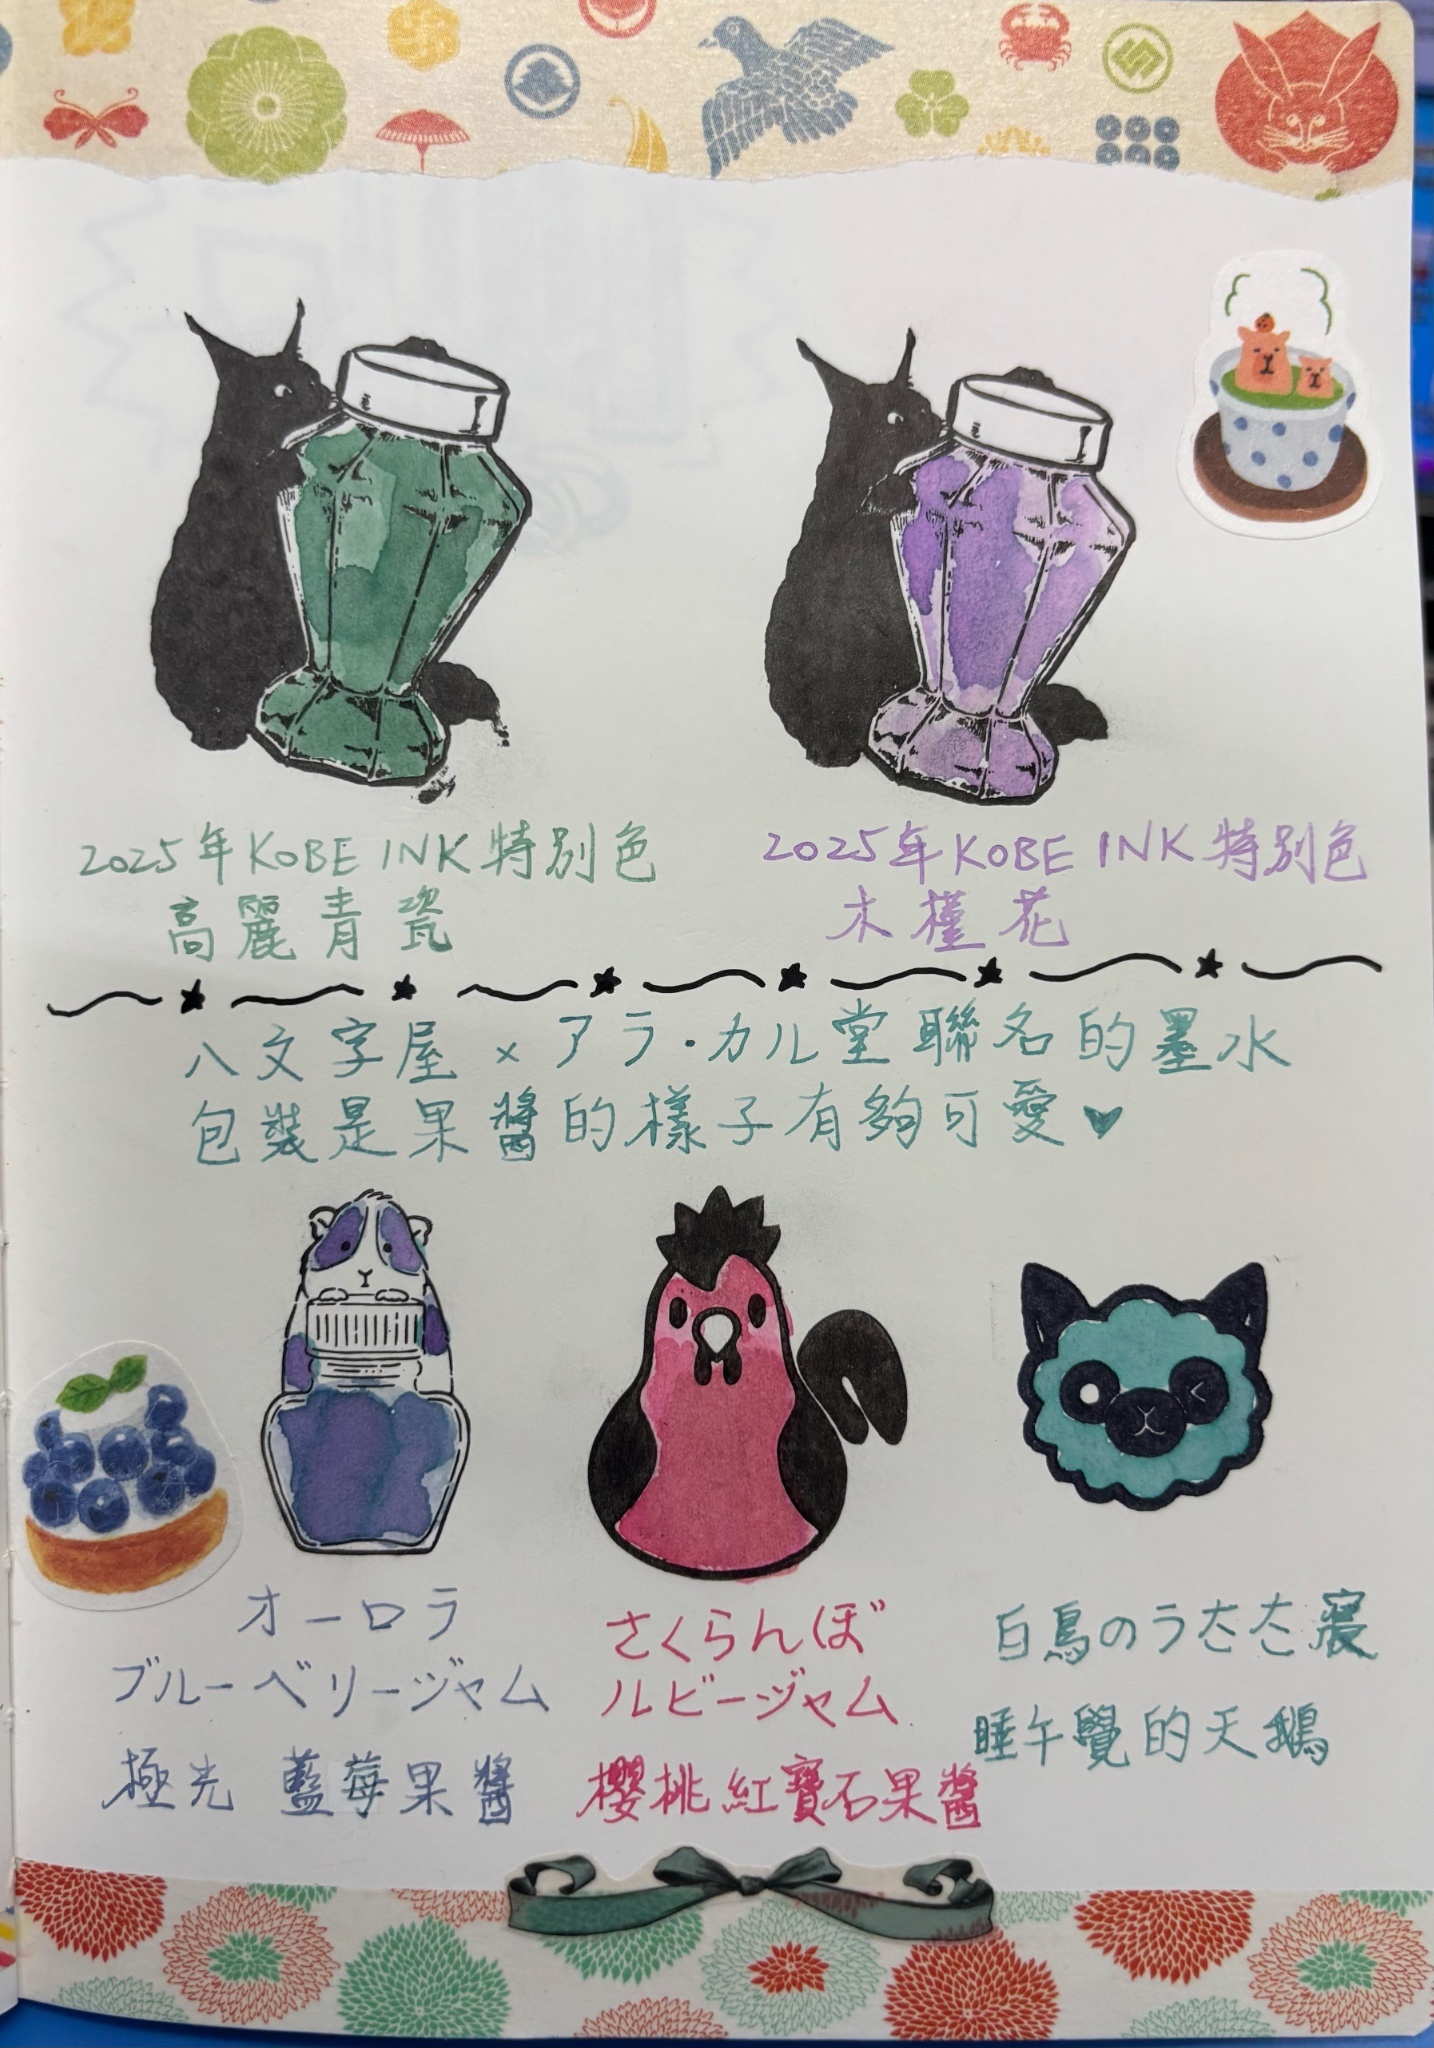 2025年KOBE INK特別色
高麗青瓷
2025年KOBE INK特別色
木槿花
八文字屋×アラ・カル堂聯名的墨水
包裝是果醬的樣子有夠可愛♥
オーロラ
ブルーベリージャム
極光 藍莓果醬
さくらんぼ
ルビージャム
櫻桃紅寶石果醬
白鳥のうたた寝
睡午覺的天鵝